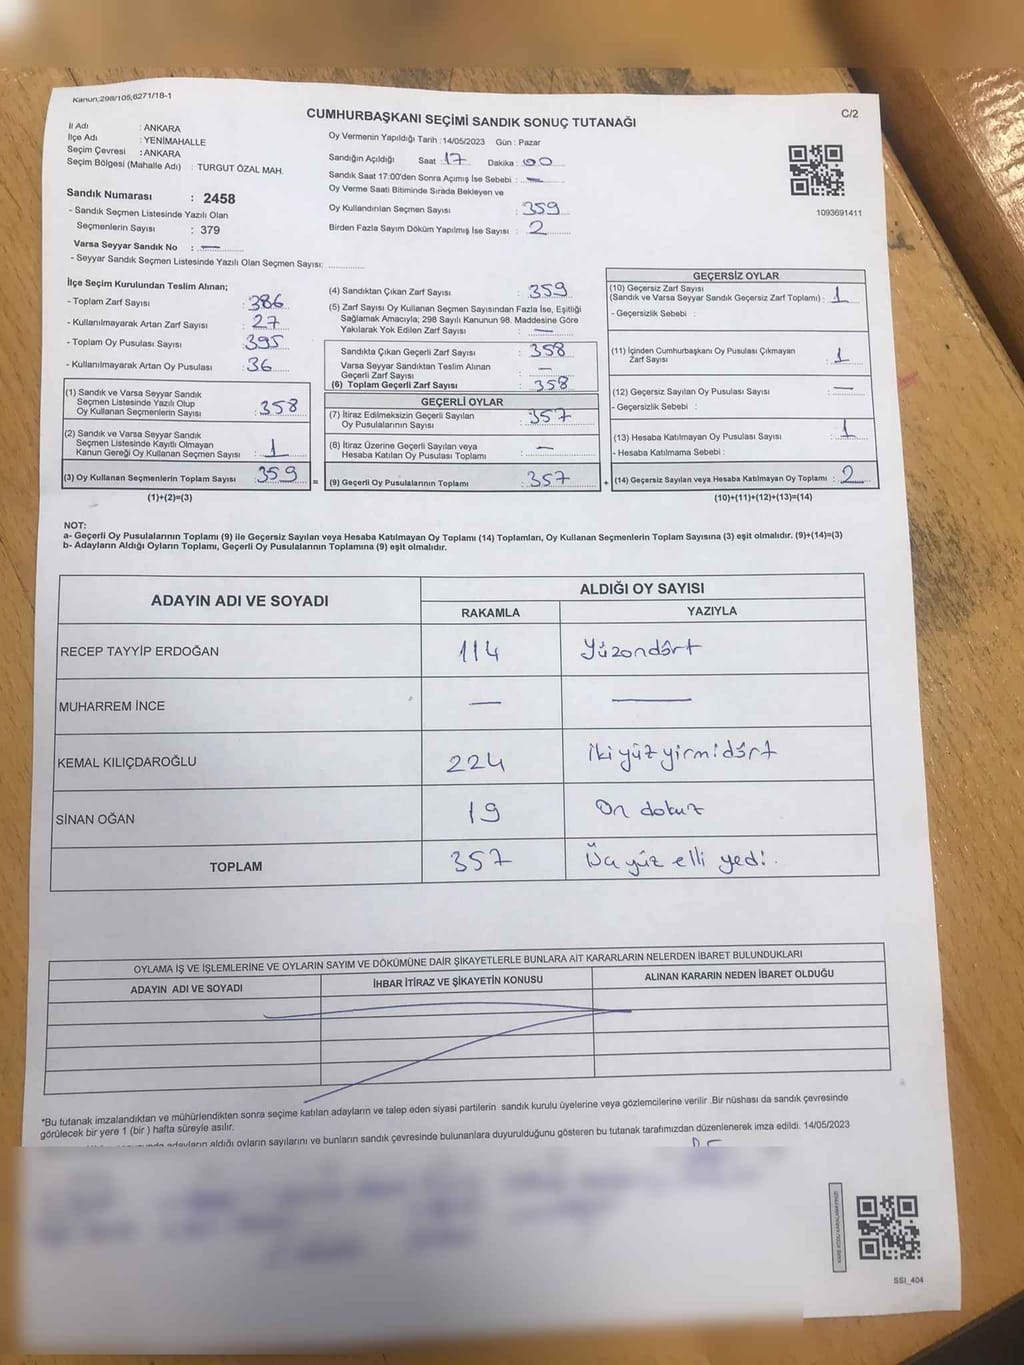 Kanun;298/105,6271/18-1
C/2
CUMHURBAŞKANI SEÇİMİ SANDIK SONUÇ TUTANAĞI
İl Adı : ANKARA
İlçe Adı : YENİMAHALLE
Seçim Çevresi : ANKARA
Seçim Bölgesi (Mahalle Adı) : TURGUT ÖZAL MAH.
Sandık Numarası : 2458
- Sandık Seçmen Listesinde Yazılı Olan
Seçmenlerin Sayısı : 379
Varsa Seyyar Sandık No : —
- Seyyar Sandık Seçmen Listesinde Yazılı Olan Seçmen Sayısı:
Oy Vermenin Yapıldığı Tarih :14/05/2023 Gün : Pazar
Sandığın Açıldığı Saat :17 Dakika : 00
Sandık Saat 17:00'den Sonra Açımış İse Sebebi : —
Oy Verme Saati Bitiminde Sırada Bekleyen ve
Oy Kullandırılan Seçmen Sayısı : 359
Birden Fazla Sayım Döküm Yapılmış İse Sayısı : 2
1093691411
İlçe Seçim Kurulundan Teslim Alınan;
- Toplam Zarf Sayısı : 386
- Kullanılmayarak Artan Zarf Sayısı : 27
- Toplam Oy Pusulası Sayısı : 395
- Kullanılmayarak Artan Oy Pusulası : 36
(1) Sandık ve Varsa Seyyar Sandık
Seçmen Listesinde Yazılı Olup
Oy Kullanan Seçmenlerin Sayısı : 358
(2) Sandık ve Varsa Seyyar Sandık
Seçmen Listesinde Kayıtlı Olmayan
Kanun Gereği Oy Kullanan Seçmen Sayısı : 1
(3) Oy Kullanan Seçmenlerin Toplam Sayısı : 359
(1)+(2)=(3)
(4) Sandıktan Çıkan Zarf Sayısı : 359
(5) Zarf Sayısı Oy Kullanan Seçmen Sayısından Fazla İse, Eşitliği
Sağlamak Amacıyla; 298 Sayılı Kanunun 98. Maddesine Göre
Yakılarak Yok Edilen Zarf Sayısı : —
Sandıkta Çıkan Geçerli Zarf Sayısı : 358
Varsa Seyyar Sandıktan Teslim Alınan
Geçerli Zarf Sayısı : —
(6) Toplam Geçerli Zarf Sayısı : 358
GEÇERLİ OYLAR
(7) İtiraz Edilmeksizin Geçerli Sayılan
Oy Pusulalarının Sayısı : 357
(8) İtiraz Üzerine Geçerli Sayılan veya
Hesaba Katılan Oy Pusulası Toplamı : —
= (9) Geçerli Oy Pusulalarının Toplamı : 357
GEÇERSİZ OYLAR
(10) Geçersiz Zarf Sayısı
(Sandık ve Varsa Seyyar Sandık Geçersiz Zarf Toplamı) : 1
- Geçersizlik Sebebi :
(11) İçinden Cumhurbaşkanı Oy Pusulası Çıkmayan
Zarf Sayısı : 1
(12) Geçersiz Sayılan Oy Pusulası Sayısı : —
- Geçersizlik Sebebi :
(13) Hesaba Katılmayan Oy Pusulası Sayısı : 1
- Hesaba Katılmama Sebebi :
+ (14) Geçersiz Sayılan veya Hesaba Katılmayan Oy Toplamı : 2
(10)+(11)+(12)+(13)=(14)
NOT:
a- Geçerli Oy Pusulalarının Toplamı (9) ile Geçersiz Sayılan veya Hesaba Katılmayan Oy Toplamı (14) Toplamları, Oy Kullanan Seçmenlerin Toplam Sayısına (3) eşit olmalıdır. (9)+(14)=(3)
b- Adayların Aldığı Oyların Toplamı, Geçerli Oy Pusulalarının Toplamına (9) eşit olmalıdır.
ADAYIN ADI VE SOYADI
ALDIĞI OY SAYISI
RAKAMLA YAZIYLA
RECEP TAYYİP ERDOĞAN 114 Yüzondört
MUHARREM İNCE — —
KEMAL KILIÇDAROĞLU 224 İki yüz yirmi dört
SİNAN OĞAN 19 On dokuz
TOPLAM 357 Üç yüz elli yedi.
OYLAMA İŞ VE İŞLEMLERİNE VE OYLARIN SAYIM VE DÖKÜMÜNE DAİR ŞİKAYETLERLE BUNLARA AİT KARARLARIN NELERDEN İBARET BULUNDUKLARI
ADAYIN ADI VE SOYADI İHBAR İTİRAZ VE ŞİKAYETİN KONUSU ALINAN KARARIN NEDEN İBARET OLDUĞU
*Bu tutanak imzalandıktan ve mühürlendikten sonra seçime katılan adayların ve talep eden siyasi partilerin sandık kurulu üyelerine veya gözlemcilerine verilir .Bir nüshası da sandık çevresinde
görülecek bir yere 1 (bir ) hafta süreyle asılır.
adayların aldığı oyların sayılarını ve bunların sandık çevresinde bulunanlara duyurulduğunu gösteren bu tutanak tarafımızdan düzenlenerek imza edildi. 14/05/2023
SSI_404